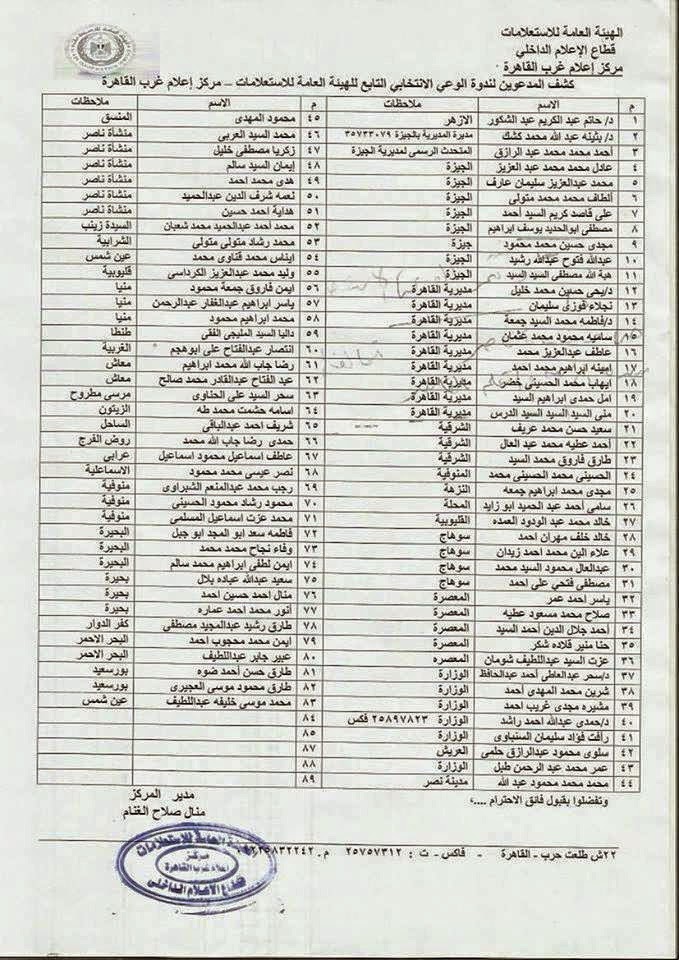 الهيئة العامة للاستعلامات
قطاع الإعلام الداخلي
مركز إعلام غرب القاهرة
كشف المدعوين لندوة الوعي الانتخابي التابع للهيئة العامة للاستعلامات – مركز إعلام غرب القاهرة
م الاسم ملاحظات
١ د/ حاتم عبد الكريم عبد الشكور الازهر
٢ د/ بثينه عبد الله محمد كشك مديرة المديرية بالجيزة ٣٥٧٣٣٠٧٩
٣ أحمد محمد محمد عبد الرازق المتحدث الرسمى لمديرية الجيزة
٤ عادل محمد محمد عبد العزيز الجيزة
٥ محمد عبدالعزيز سليمان عارف الجيزة
٦ ألطاف محمد محمد متولى الجيزة
٧ على قاصد كريم السيد أحمد الجيزة
٨ مصطفى ابوالحديد يوسف ابراهيم الجيزة
٩ مجدى حسين محمد محمود جيزة
١٠ عبدالله فتوح عبدالله رشيد الجيزة
١١ هبة الله مصطفى السيد السيد الجيزة
١٢ د/يحى حسين محمد خليل مديرية القاهرة
١٣ نجلاء فوزى سليمان مديرية القاهرة
١٤ د/فاطمه محمد السيد جمعة مديرية القاهرة
١٥ ساميه محمود محمد عثمان مديرية القاهرة
١٦ عاطف عبدالعزيز محمد مديرية القاهرة
١٧ امينه ابراهيم محمد احمد مديرية القاهرة
١٨ ايهاب محمد الحسينى خضر مديرية القاهرة
١٩ امل حمدى ابراهيم السيد مديرية القاهرة
٢٠ منى السيد السيد السيد الدرس مديرية القاهرة
٢١ سعيد حسن محمد عريف الشرقية
٢٢ أحمد عطيه محمد عبد العال الشرقية
٢٣ طارق فاروق محمد السيد الشرقية
٢٤ الحسينى محمد الحسينى محمد المنوفية
٢٥ مجدى محمد ابراهيم جمعه النزهة
٢٦ سامى أحمد عبد الحميد ابو زايد المحلة
٢٧ خالد محمد عبد الودود العمده القليوبية
٢٨ خالد خلف مهران احمد سوهاج
٢٩ علاء الين محمد احمد زيدان سوهاج
٣٠ عبدالعال محمود السيد محمد سوهاج
٣١ مصطفى فتحي علي احمد سوهاج
٣٢ ياسر احمد عمر المعصرة
٣٣ صلاح محمد مسعود عطيه المعصرة
٣٤ أحمد جلال الدين أحمد السيد المعصرة
٣٥ حنا منير قلاده شكر المعصرة
٣٦ عزت السيد عبداللطيف شومان المعصره
٣٧ د/سحر عبدالعاطى أحمد عبدالحافظ الوزارة
٣٨ شرين محمد المهدى أحمد الوزارة
٣٩ مشيره مجدى غريب احمد الوزارة
٤٠ د/حمدى عبدالله احمد راشد الوزارة ٢٥٨٩٧٨٢٣ فكس
٤١ رافت فؤاد سليمان السنباوى الوزارة
٤٢ سلوى محمود عبدالرازق حلمى العريش
٤٣ عمر محمد عبد الرحمن طبل الوزارة
٤٤ محمد محمد محمود عبد الله مدينة نصر
م الاسم ملاحظات
٤٥ محمود المهدى المنسق
٤٦ محمد السيد العربى منشأة ناصر
٤٧ زكريا مصطفى خليل منشأة ناصر
٤٨ إيمان السيد سالم منشأة ناصر
٤٩ هدى محمد احمد منشاة ناصر
٥٠ نعمه شرف الدين عبدالحميد منشاة ناصر
٥١ هداية احمد حسين منشاة ناصر
٥٢ محمد أحمد عبدالحميد محمد شعبان السيدة زينب
٥٣ محمد رشاد متولى متولى الشرابية
٥٤ إيناس محمد قناوى محمد عين شمس
٥٥ وليد محمد عبدالعزيز الكرداسى قليوبية
٥٦ ايمن فاروق جمعة محمود منيا
٥٧ ياسر ابراهيم عبدالغفار عبدالرحمن منيا
٥٨ محمد ابراهيم محمود منيا
٥٩ داليا السيد المليجى الفقى طنطا
٦٠ انتصار عبدالفتاح على ابوهجم الغربية
٦١ رضا جاب الله محمد ابراهيم معاش
٦٢ عبد الفتاح عبدالقادر محمد صالح معاش
٦٣ سحر السيد على الحناوى مرسى مطروح
٦٤ اسامه حشمت محمد طه الزيتون
٦٥ شريف احمد عبدالباقى الساحل
٦٦ حمدى رضا جاب الله محمد روض الفرج
٦٧ عاطف اسماعيل محمود اسماعيل عرابى
٦٨ نصر عيسى محمد محمود الاسماعلية
٦٩ رجب محمد عبدالمنعم الشبراوى منوفية
٧٠ محمود رشاد محمود الحسينى منوفية
٧١ محمد عزت اسماعيل المسلمى منوفية
٧٢ فاطمه سعد ابو المجد ابو جبل البحيرة
٧٣ وفاء نجاح محمد محمد البحيرة
٧٤ ايمن لطفى ابراهيم محمد سالم البحيرة
٧٥ سعيد عبدالله عباده بلال بحيرة
٧٦ منال احمد حسين احمد بحيرة
٧٧ أنور محمد احمد عماره بحيرة
٧٨ طارق رشيد عبدالمجيد مصطفى كفر الدوار
٧٩ ايمن محمد محجوب احمد البحر الاحمر
٨٠ عبير جابر عبداللطيف البحر الاحمر
٨١ طارق حسن أحمد ضوه بورسعيد
٨٢ طارق محمود موسى العجيرى بورسعيد
٨٣ محمد موسى خليفه عبداللطيف عين شمس
٨٤
٨٥
٨٧
٨٨
٨٩
وتفضلوا بقبول فائق الاحترام ....،
مدير المركز
منال صلاح الغنام
٢٢ش طلعت حرب - القاهرة - فاكس - ت : ٢٥٧٥٧٣١٢ م.
الهيئة العامة للاستعلامات
مركز
اعلام غرب القاهرة
قطاع الاعلام الداخلى